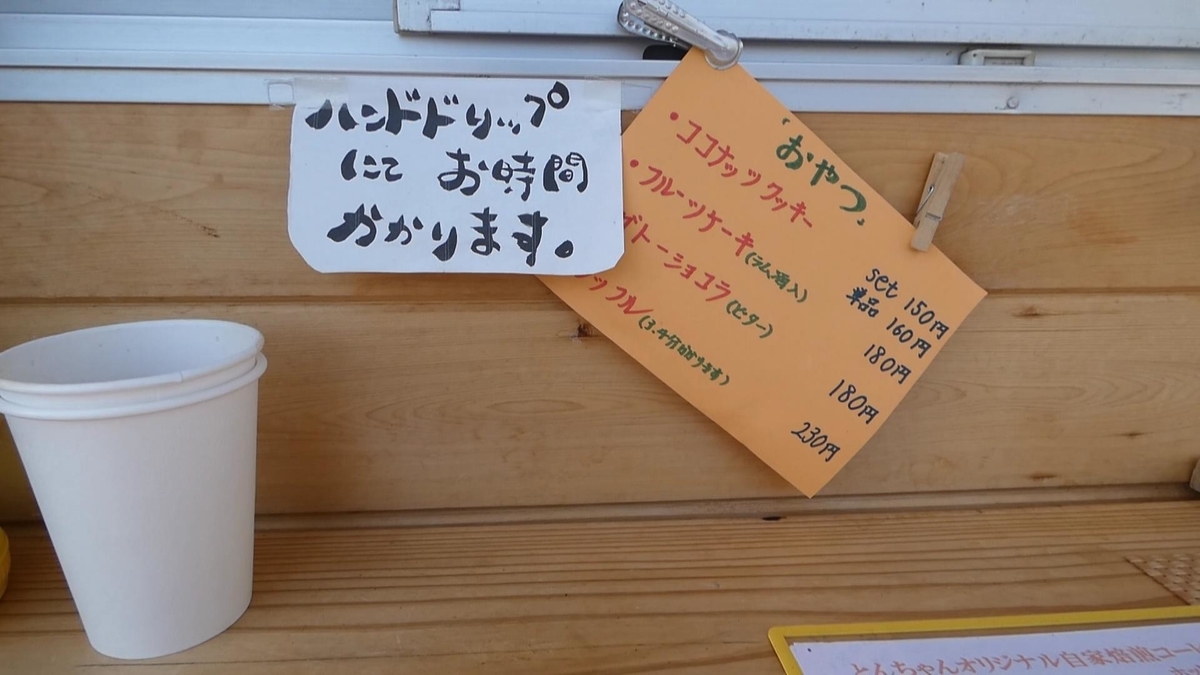 ハンドドリップ
にて お時間
おかります。
「おやつ」
・ココナッツクッキー
set 150円
単品 160円
・フルーツケーキ(ラム酒入)
180円
ガトーショコラ(ビター)
180円
ッフル(3.4分かかります)
230円
とんちゃんオリジナル自家焙煎コー